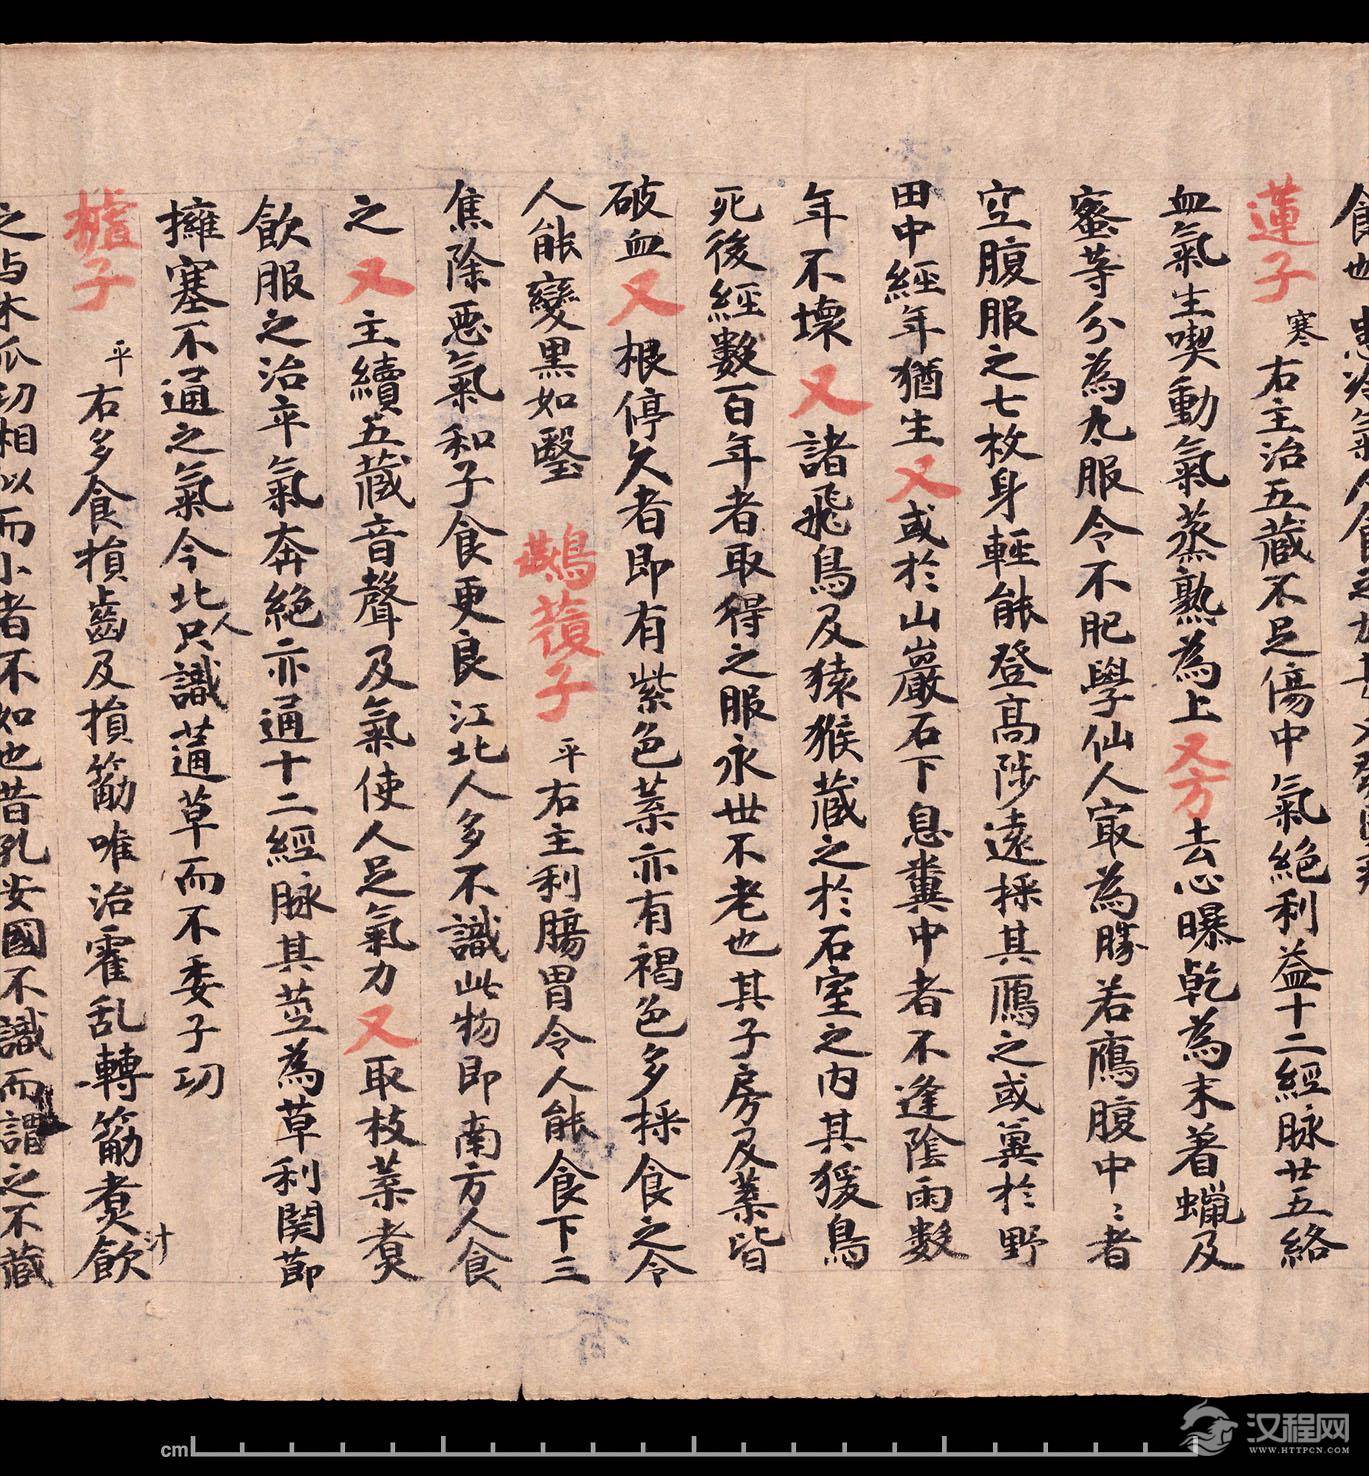 蓮子 寒 右主治五蔵不足傷中氣絕利益十二經脉廿五絡
血氣生喫動氣蒸熟為上又方去心曝乾為末着蠟及
蜜等分為丸服令不肥學仙人㝡為勝若鴈腹中〻者
空腹服之七枚身輕能登高陟遠採其鴈之或糞於野
田中經年猶生又或於山巖石下息糞中者不逢陰雨數
年不壞又諸飛鳥及猿猴蔵之於石室之內其猨鳥
死後經數百年者取得之服永世不老也其子房及葉皆
破血又根停久者即有紫色葉亦有褐色多採食之令
人能變黑如瑿 鷰蕧子 平 右主利腸胃令人能食下三
焦除惡氣和子食更良江北人多不識此物即南方人食
之又主續五蔵音聲及氣使人足氣力又取枝葉煮
飲服之治卒氣奔絕亦通十二經脉其莖為草利関莭
擁塞不通之氣今北人只識蓪草而不委子功
樝子 平 右多食損齒及損筋唯治霍乱轉筋煮汁飲
之与木瓜功相似而小者不如也昔孔安國不識而謂之不蔵
cm
汉程网
WWW.HTTPCN.COM